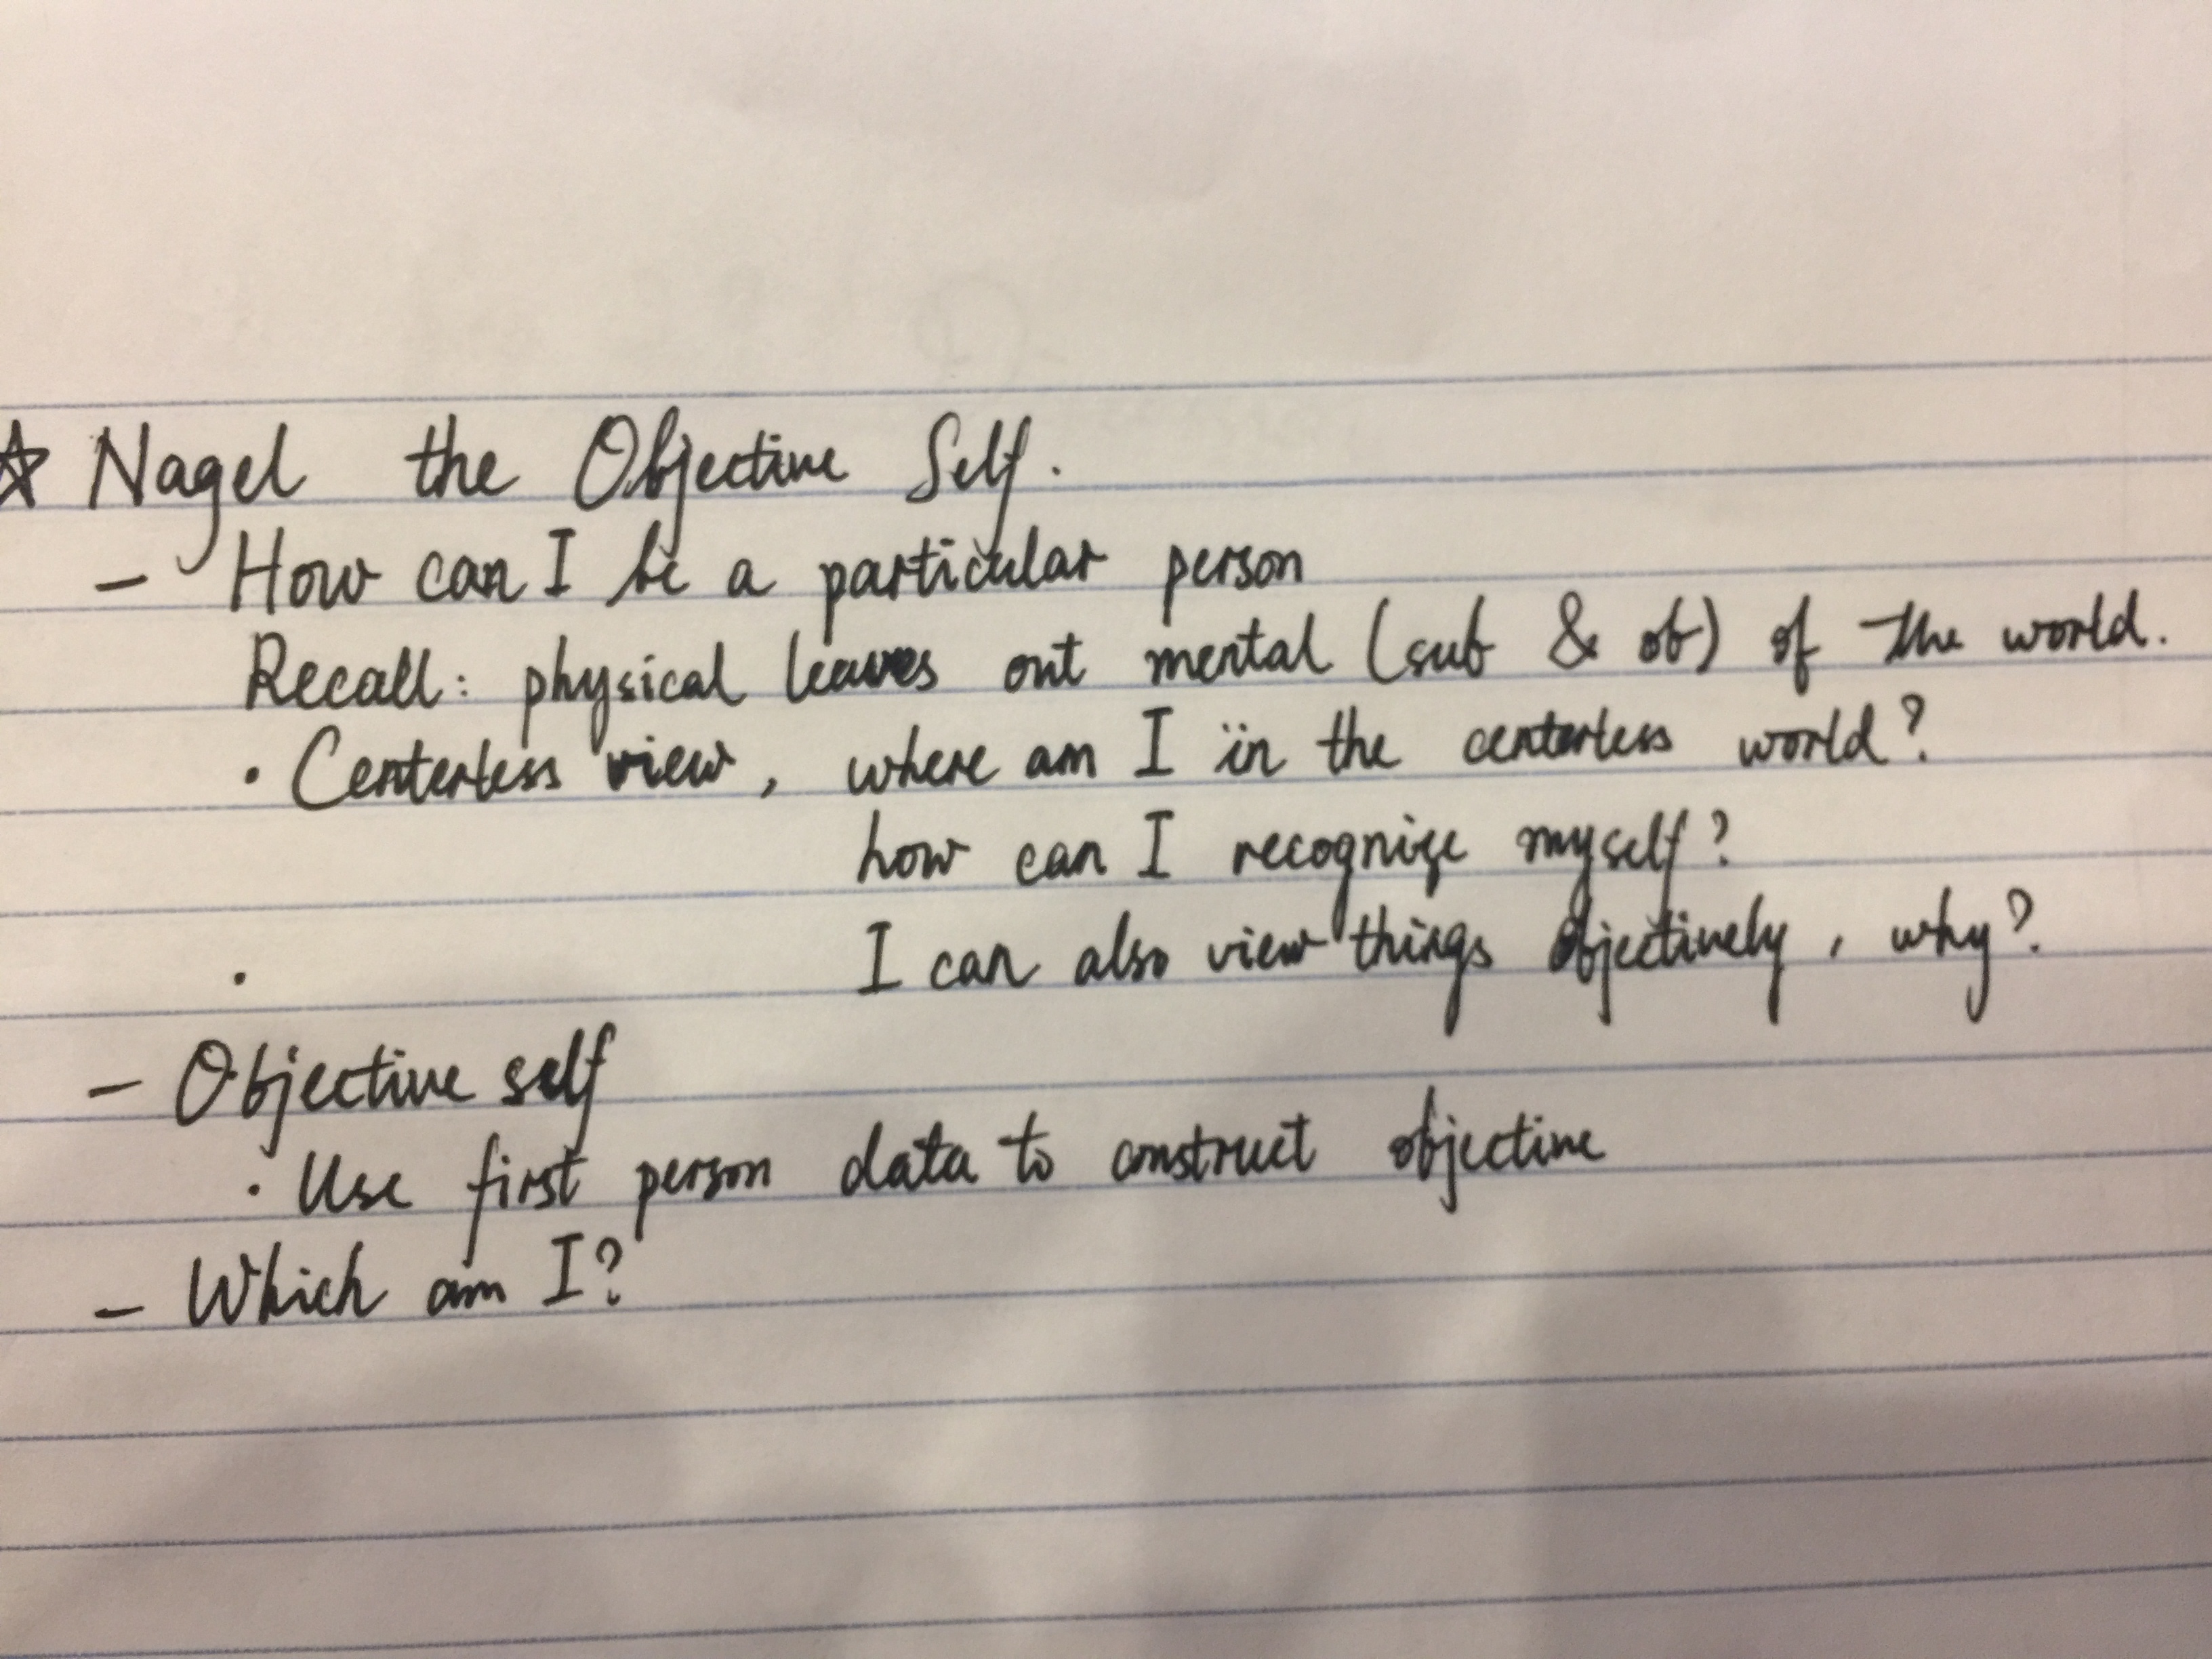 ☆ Nagel the Objective Self.
– How can I be a particular person
Recall: physical leaves out mental (sub & ob) of the world.
· Centerless view, where am I in the centerless world?
how can I recognize myself?
· I can also view things objectively, why?
– Objective self
· Use first person data to construct objective
– Which am I?